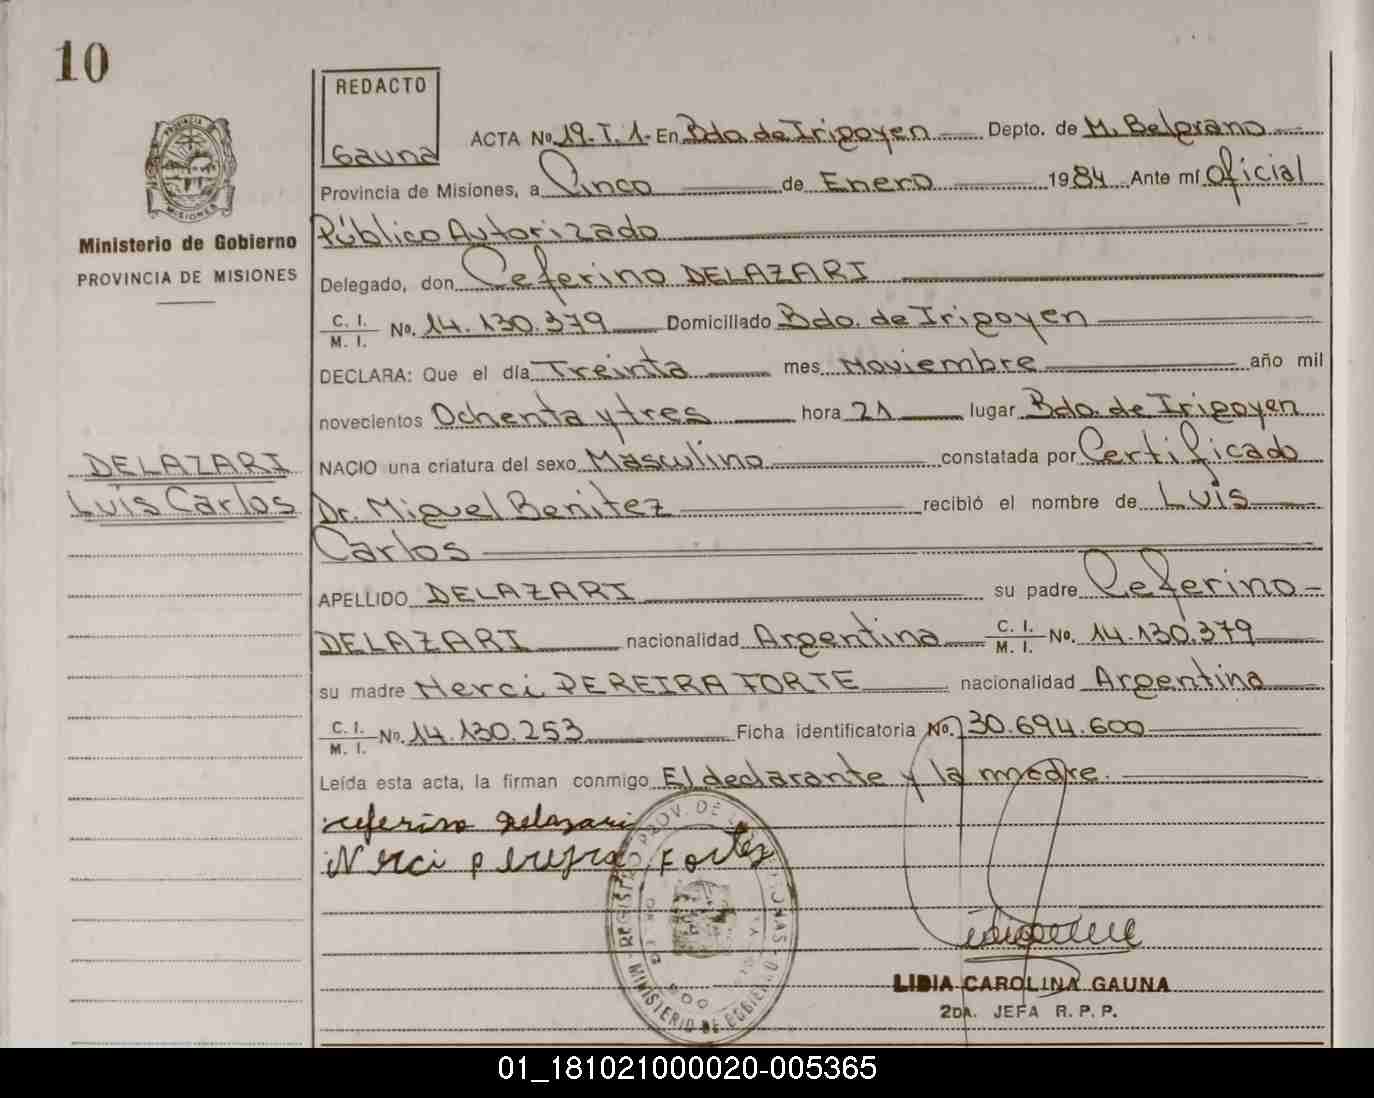 10
REDACTO
Gauna
PROVINCIA
MISIONES
Ministerio de Gobierno
PROVINCIA DE MISIONES
ACTA No. 19-T.1- En Bdo. de Irigoyen Depto. de M. Belgrano
Provincia de Misiones, a Cinco de Enero 1984 Ante mí Oficial
Público Autorizado
Delegado, don Ceferino DELAZARI
C. I.
M. I. No. 14.130.379 Domiciliado Bdo. de Irigoyen
DECLARA: Que el día Treinta mes Noviembre año mil
novecientos Ochenta y tres hora 21 lugar Bdo. de Irigoyen
DELAZARI
Luis Carlos
NACIO una criatura del sexo Masculino constatada por Certificado
Dr. Miguel Benitez recibió el nombre de Luis
Carlos
APELLIDO DELAZARI su padre Ceferino-
DELAZARI nacionalidad Argentina C. I. M. I. No. 14.130.379
su madre Nerci PEREIRA FORTE nacionalidad Argentina
C. I.
M. I. No. 14.130.253 Ficha identificatoria No. 30.694.600
Leída esta acta, la firman conmigo El declarante y la madre.
ceferino Delazari
Nerci pereira Fortes
REGISTRO PROV. DE LAS PERSONAS
MINISTERIO DE GOBIERNO
LIDIA CAROLINA GAUNA
2DA. JEFA R. P. P.
01_181021000020-005365